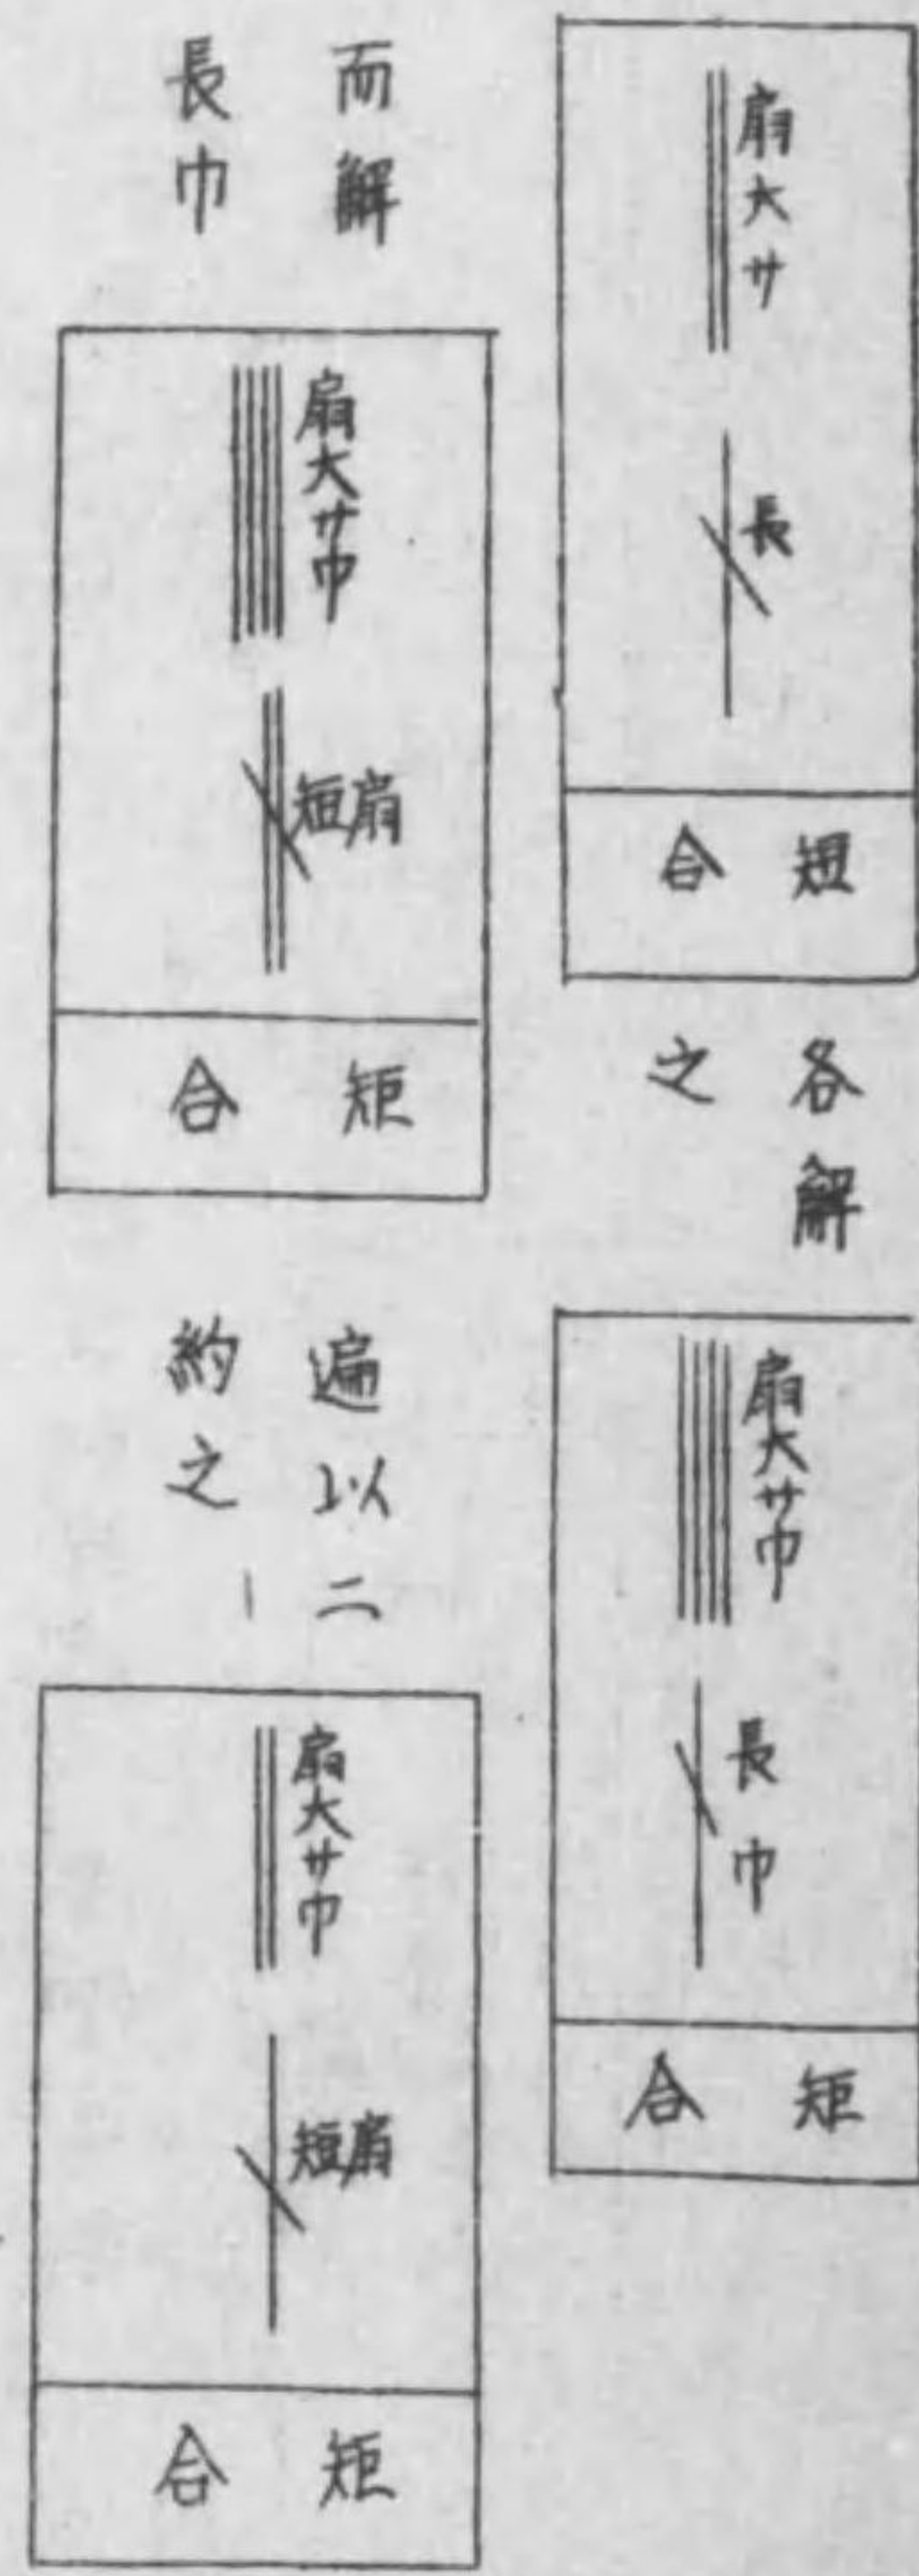 扇大サ
長
短合
各解
之
扇大サ巾
長巾
矩合
而解
長巾
扇大サ巾
短扇
矩合
遍以二
約之
扇大サ巾
短扇
矩合